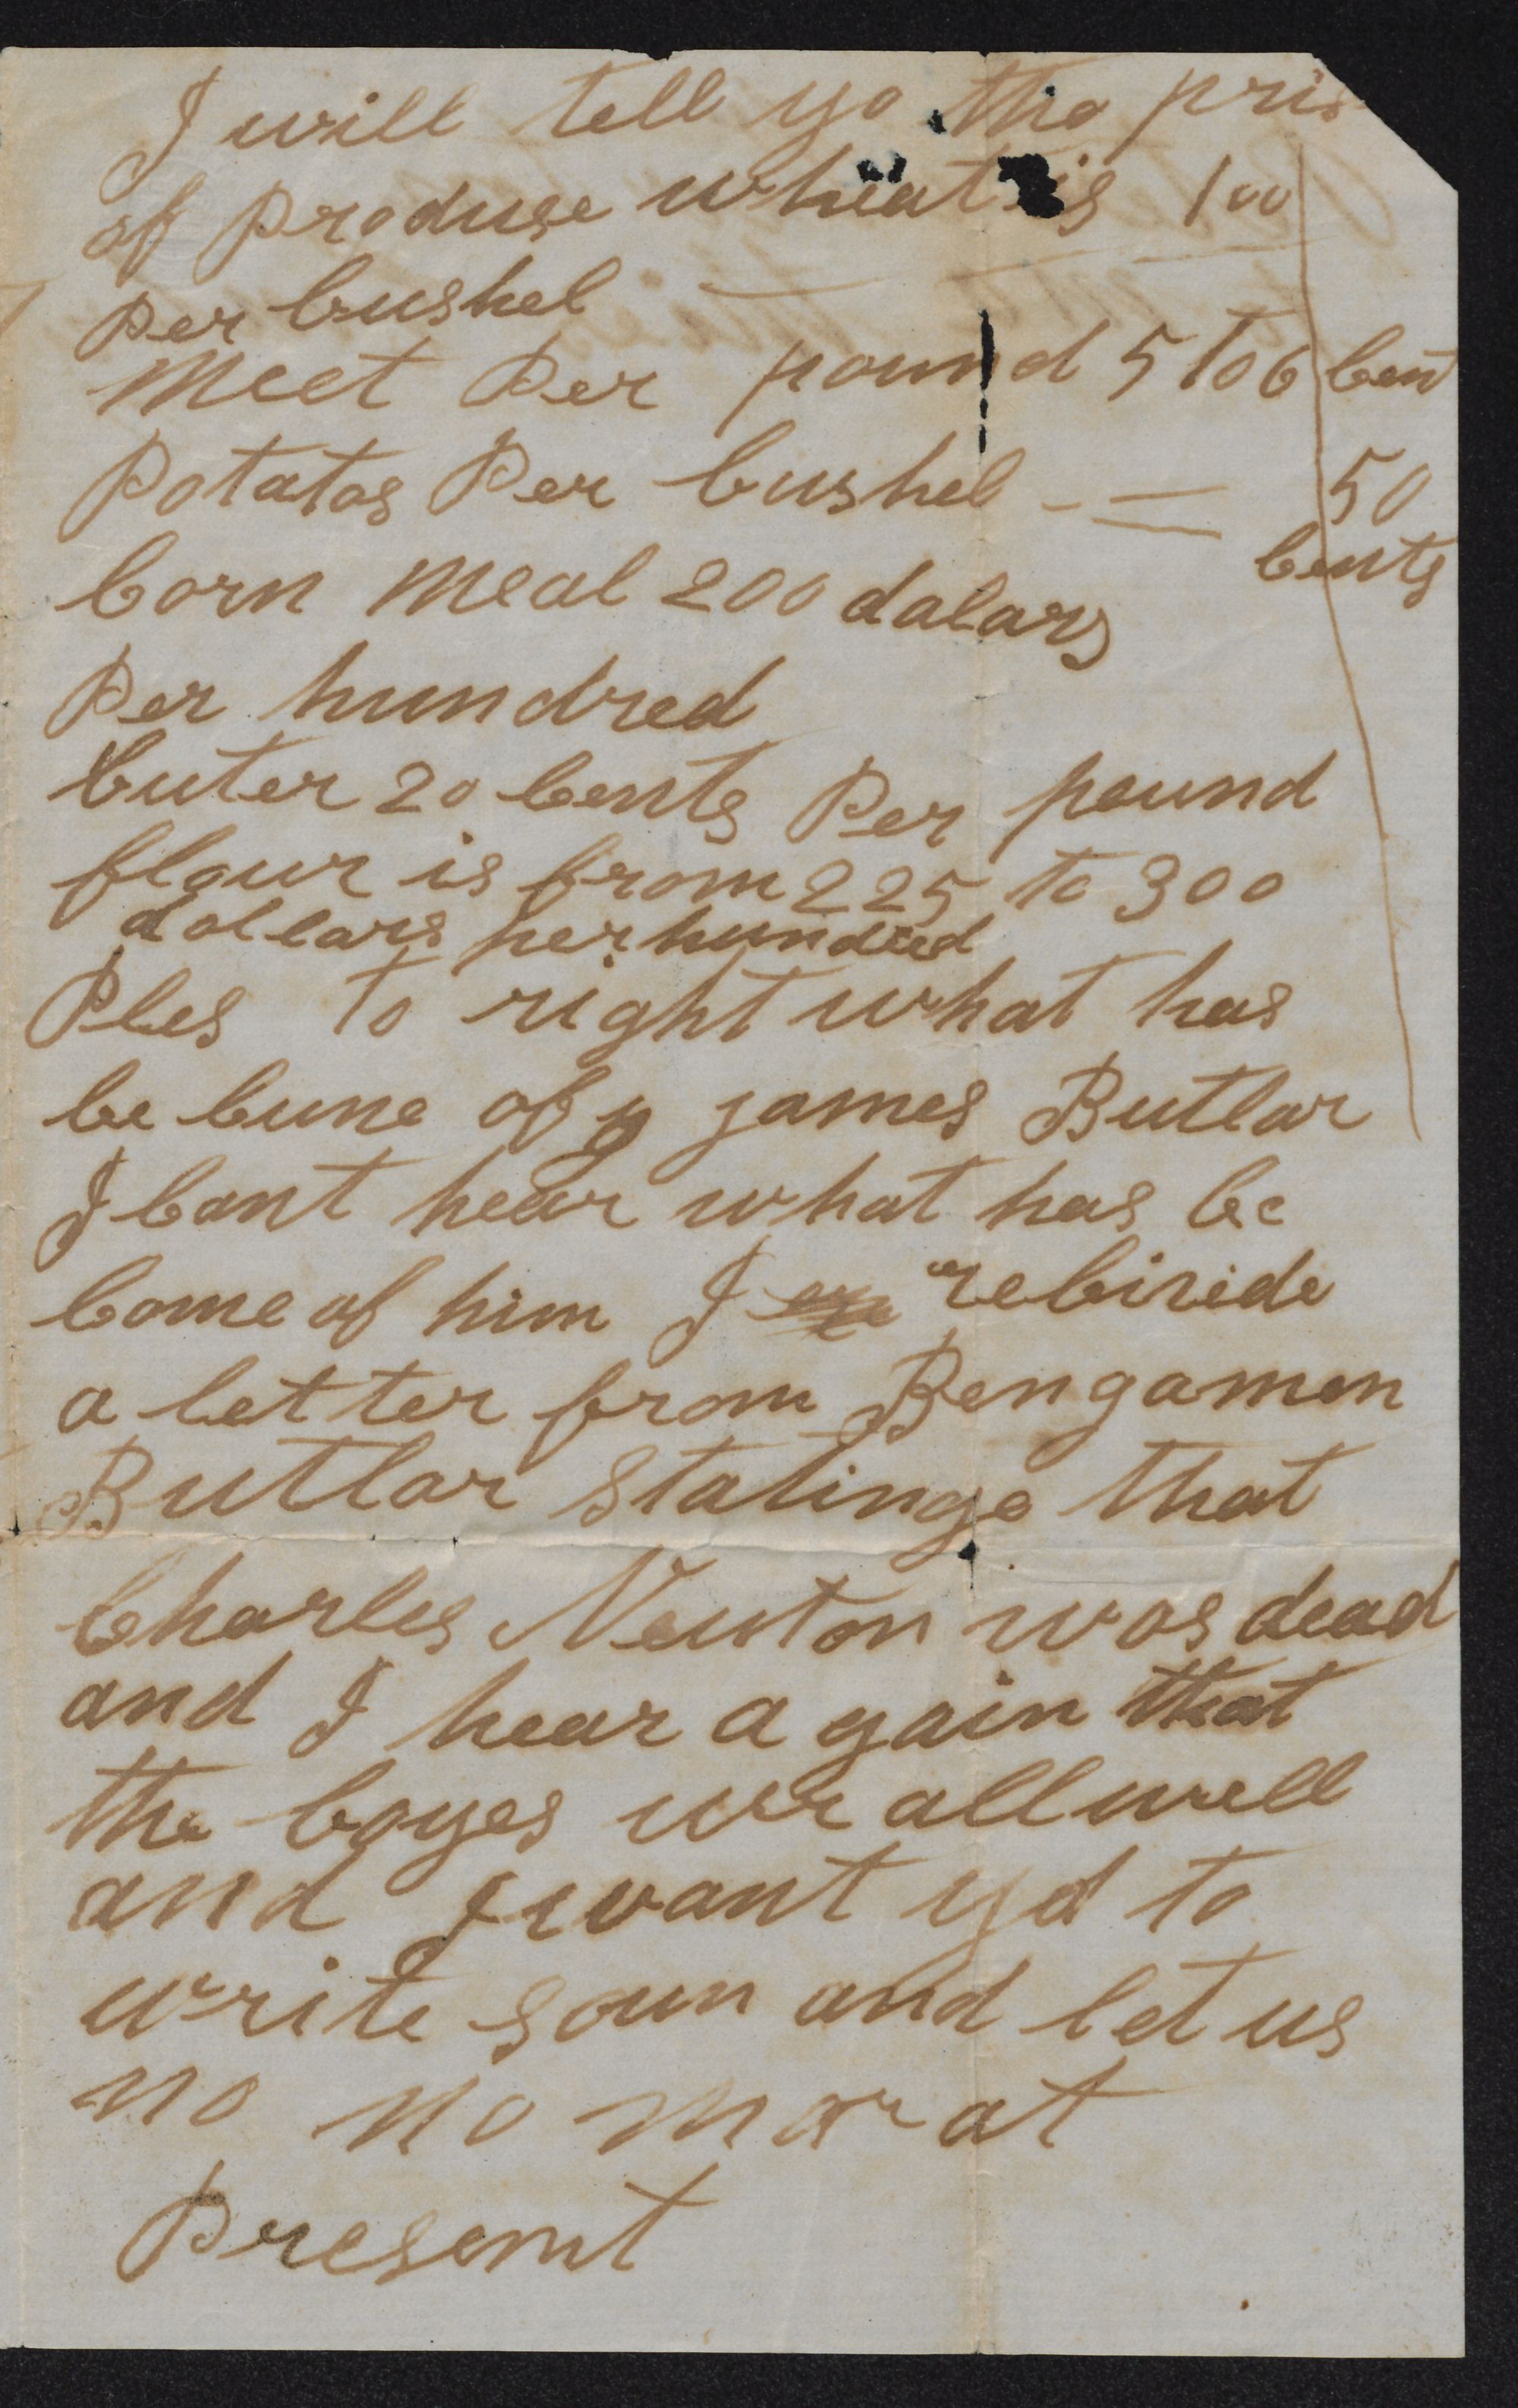 I will tell yo the pris
of Produse wheat is 100
Per bushel
Meet Per pound 5 to 6 Cent
Potatos Per bushel - = 50
Cents
Corn Meal 200 dalars
Per hundred
buter 20 Cents Per pound
flour is from 225 to 300
dollars per hundred
Ples to right what has
be Cune of y james Butlar
I Cant hear what has be
Come of him I reciride
a letter from Bengamon
Butlar Statinge that
Charles Newton was dead
and I hear a gain that
the boyes wer all well
and I want yo to
write soun and let us
no no mor at
Present